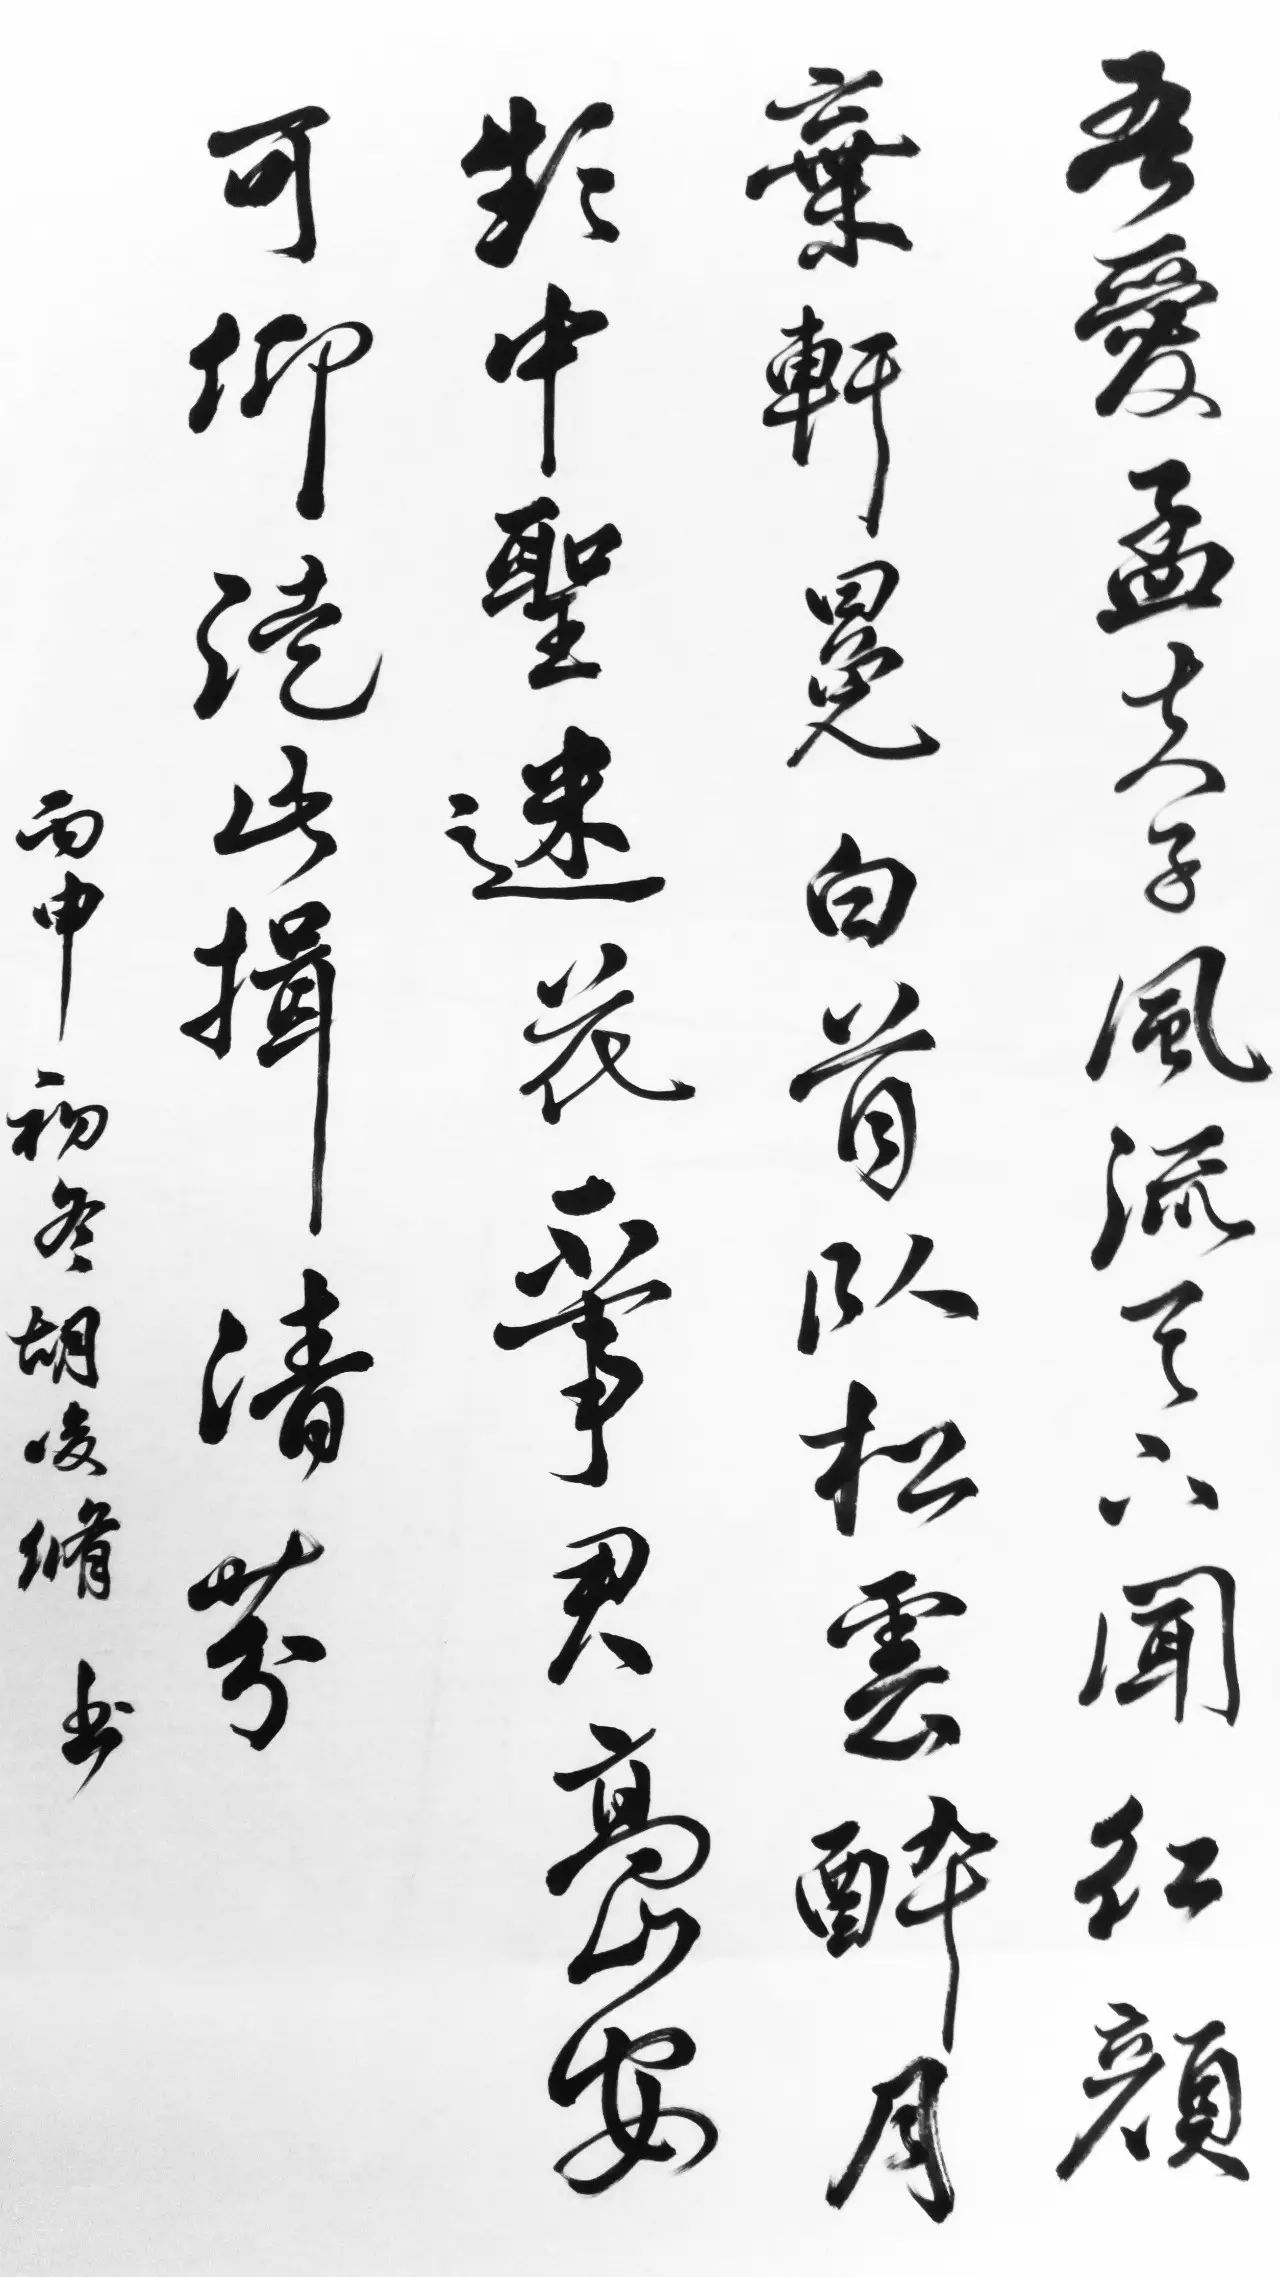 吾愛孟夫子風流天下聞紅顏
棄軒冕白首臥松雲醉月
頻中聖迷花不事君高山安
可仰徒此揖清芬
丙申初冬胡凌脩書